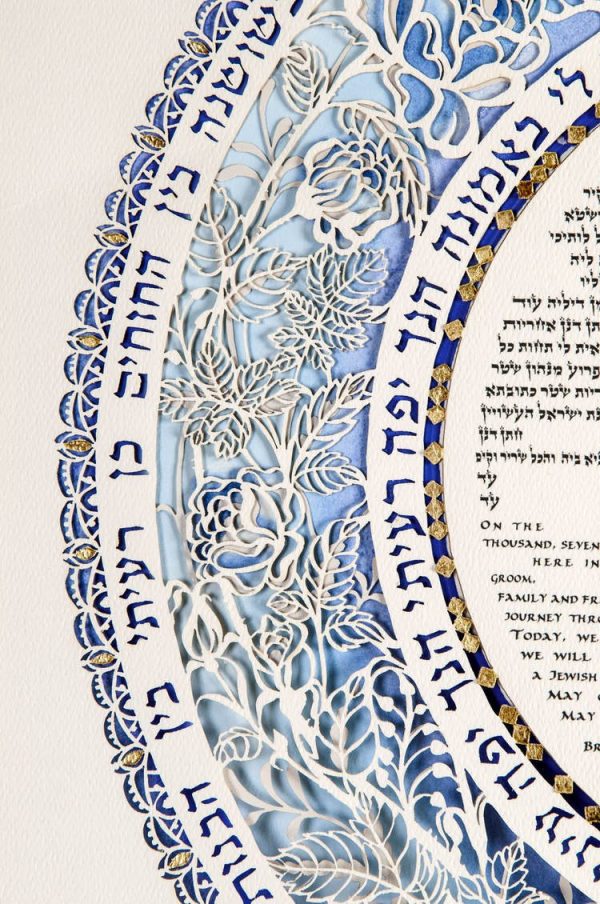 שושנה בין החוחים כן רעיתי בין הבנות
לי באמונה הנך יפה רעיתי הנך יפה
לותיכי
דיליה עוד
דנן אחריות
לי תחות כל
פרוע מנהון שטר
שטר כתובתא
ישראל העשויין
חתן דנן
ביה והכל שריר וקים
עד
עד
ON THE
THOUSAND, SEVEN
HERE IN
GROOM,
FAMILY AND FR
JOURNEY THRO
TODAY, WE
WE WILL
A JEWISH
MAY
MAY
BR